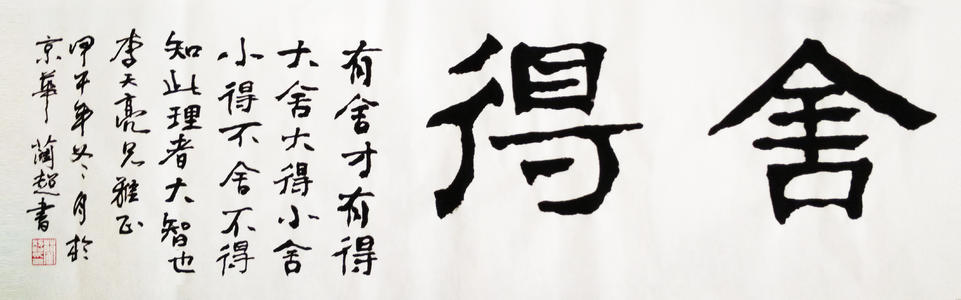 舍得
有舍才有得
大舍大得小舍
小得不舍不得
知此理者大智也
李天亮兄雅正
甲午年冬月於
京華蘭超書